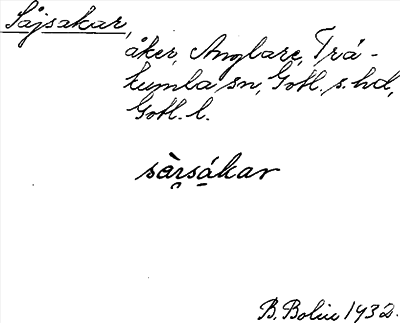 Såjsakar,
åker, Anglare, Trä-
kumla sn, Gotl. s. hd,
Gotl. l.
sàrsákar
B. Bolin 1932.